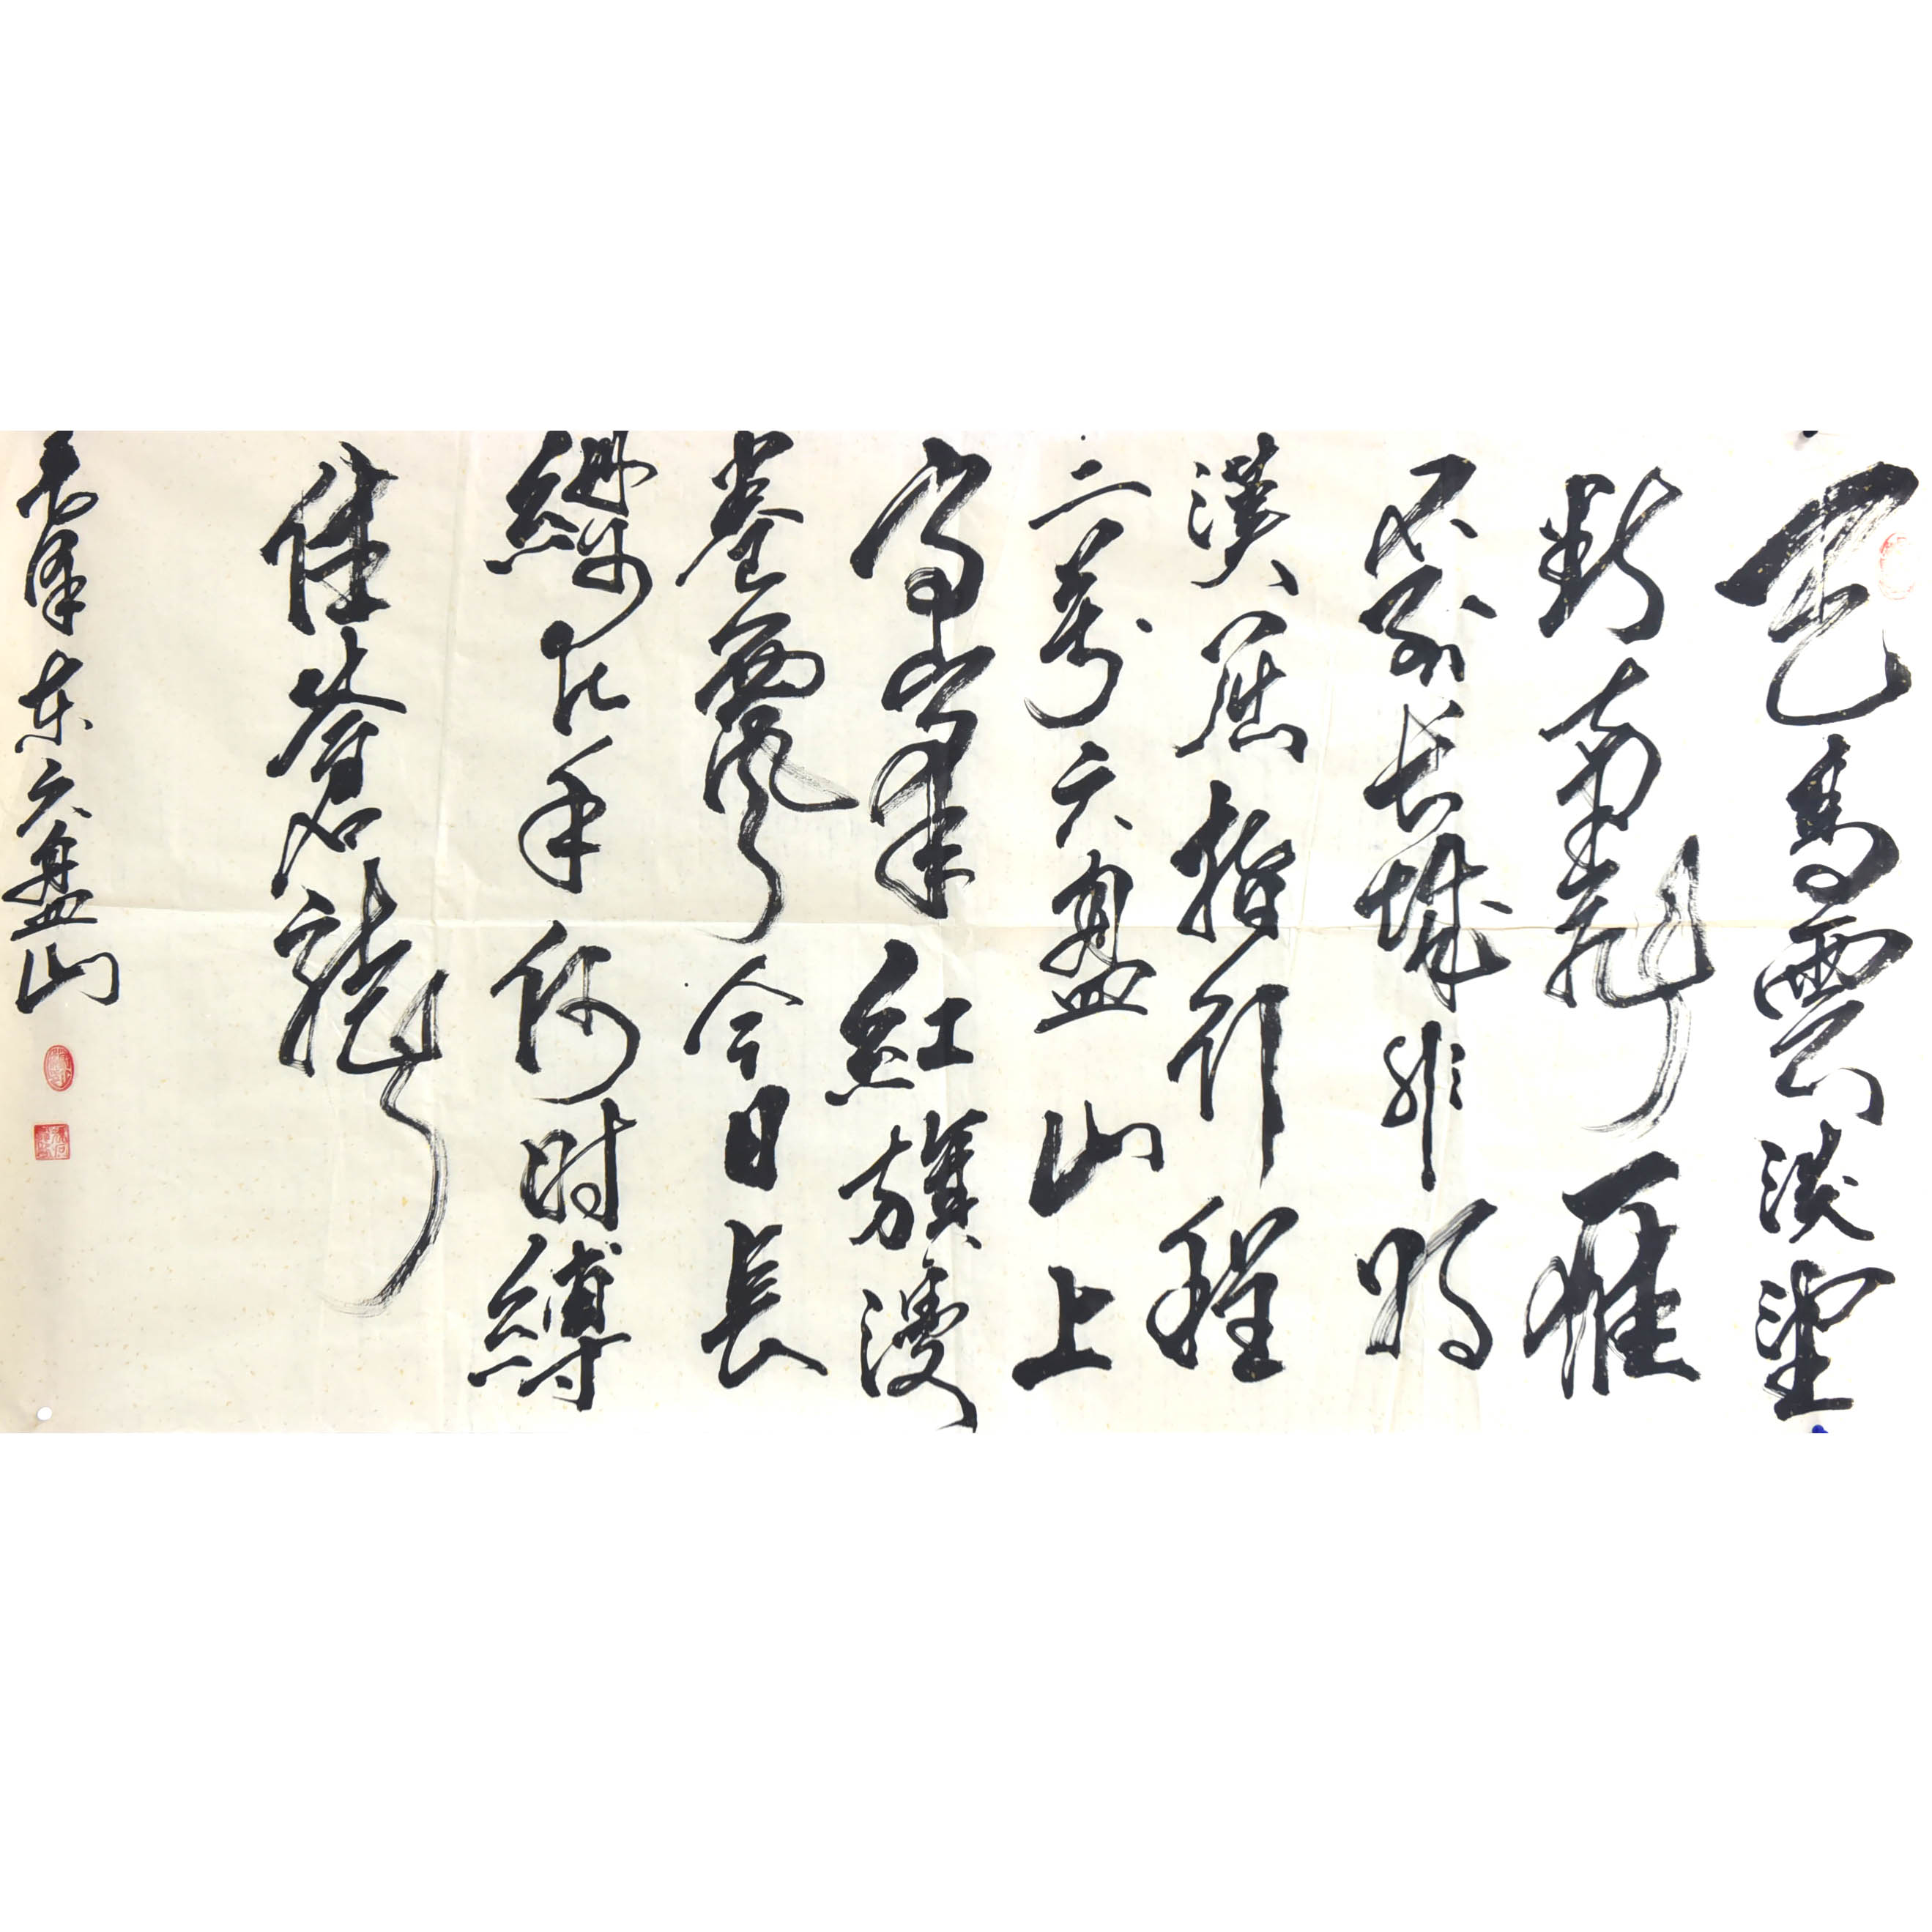 天高雲淡望
断南飛雁
不到长城非好
漢屈指行程
二萬六盤山上
高峯紅旗漫
卷西風今日長
纓在手何时縛
住蒼龍
毛澤东六盤山